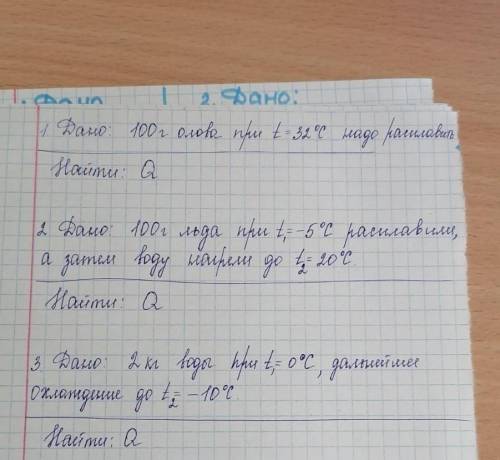 1. Дано 2. Дано:
1 Дано: 100г олова при t=32°C надо расплавить
Найти: Q
2 Дано: 100г льда при t₁=-5°C расплавили,
а затем воду нагрели до t₂=20°C.
Найти: Q
3 Дано: 2 кг воды при t₁=0°C, дальнейшее
охлаждение до t₂=-10°C
Найти: Q